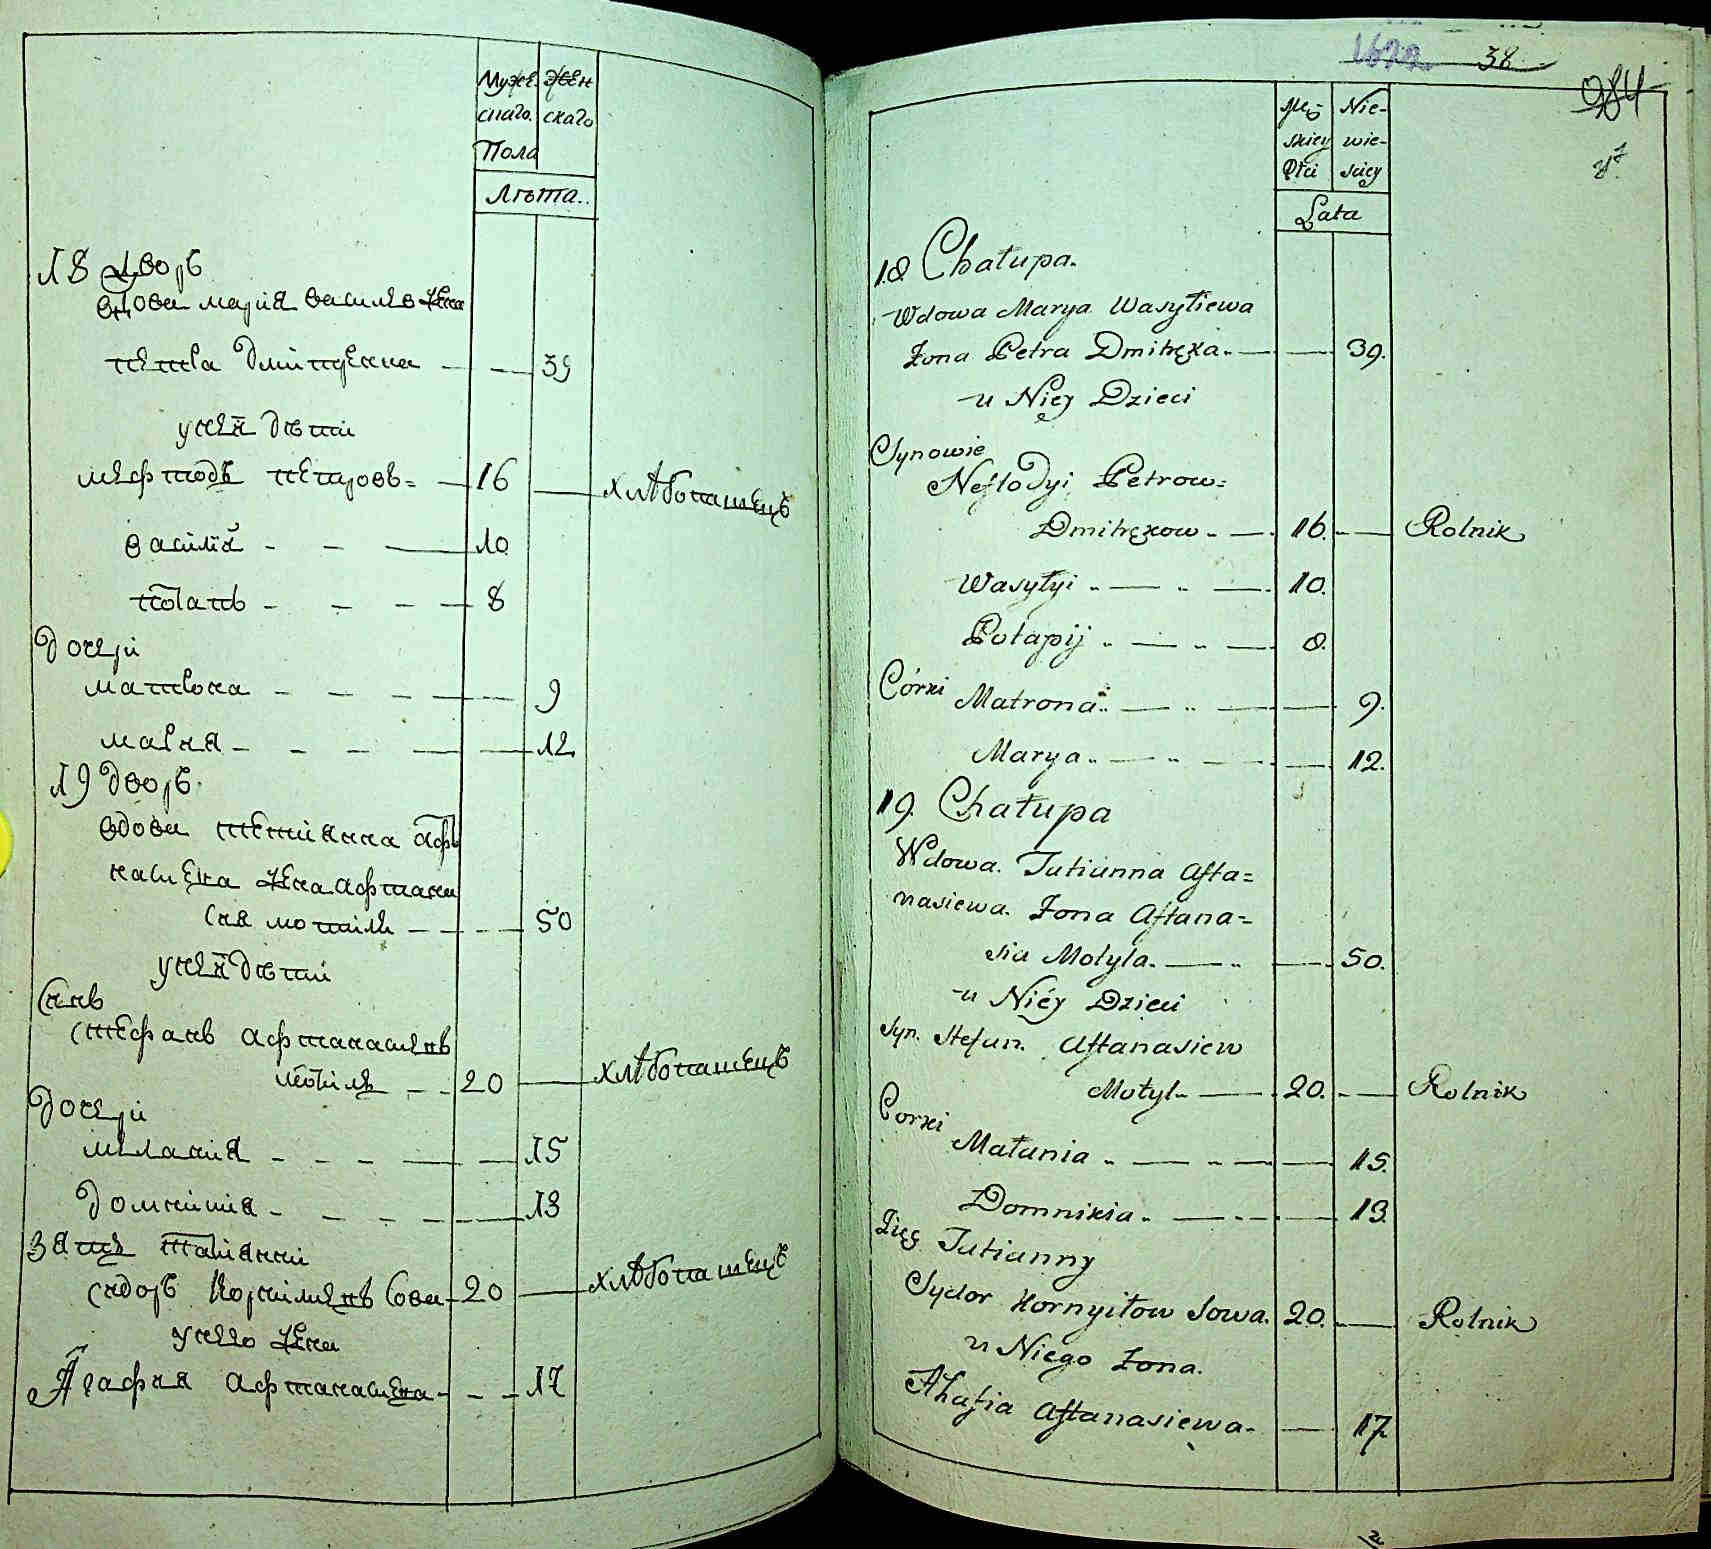 Муже Жен
скаго. скаго
Пола
Лѣта..
18 Дворъ
вдова марія василева жена
петра дмитренка 39
унея дѣти
мефтодъ петровъ= 16 хлѣбопашецъ
василій 10
потапъ 8
дочери
матрона 9
марья 12
19 дворъ.
вдова тетіанна афта
насиева жена афтана
сия мотиля 50
унея дѣти
Сынъ
стефанъ афтанасиевъ
мотиль 20 хлѣбопашецъ
дочери
мелания 15
домникия 13
Зять татіянни
сидоръ корнилиевъ Сова 20 хлѣбопашецъ
унего жена
Агафия афтанасиева 17
38
984
Mę- Nie-
skiey wie-
Płci sciey
Lata
18. Chałupa.
Wdowa Marya Wasyliewa
Żona Petra Dmitręka. 39.
u Niey Dzieci
Synowie
Neftodyi Petrow=
Dmitrękow 16. Rolnik
Wasylyi 10.
Potapij 8.
Córki Matrona 9.
Marya 12.
19. Chałupa
Wdowa. Tatianna Afta=
nasiewa. Żona Aftana=
sia Motyla. 50.
u Niéy Dzieci
Syn. Stefan. Aftanasiew
Motyl 20. Rolnik
Corki
Małania 15.
Domnikia 13.
Zięć Tatianny
Sydor Kornyiłow Sowa. 20. Rolnik
u Niego Żona.
Ahafia Aftanasiewa 17.